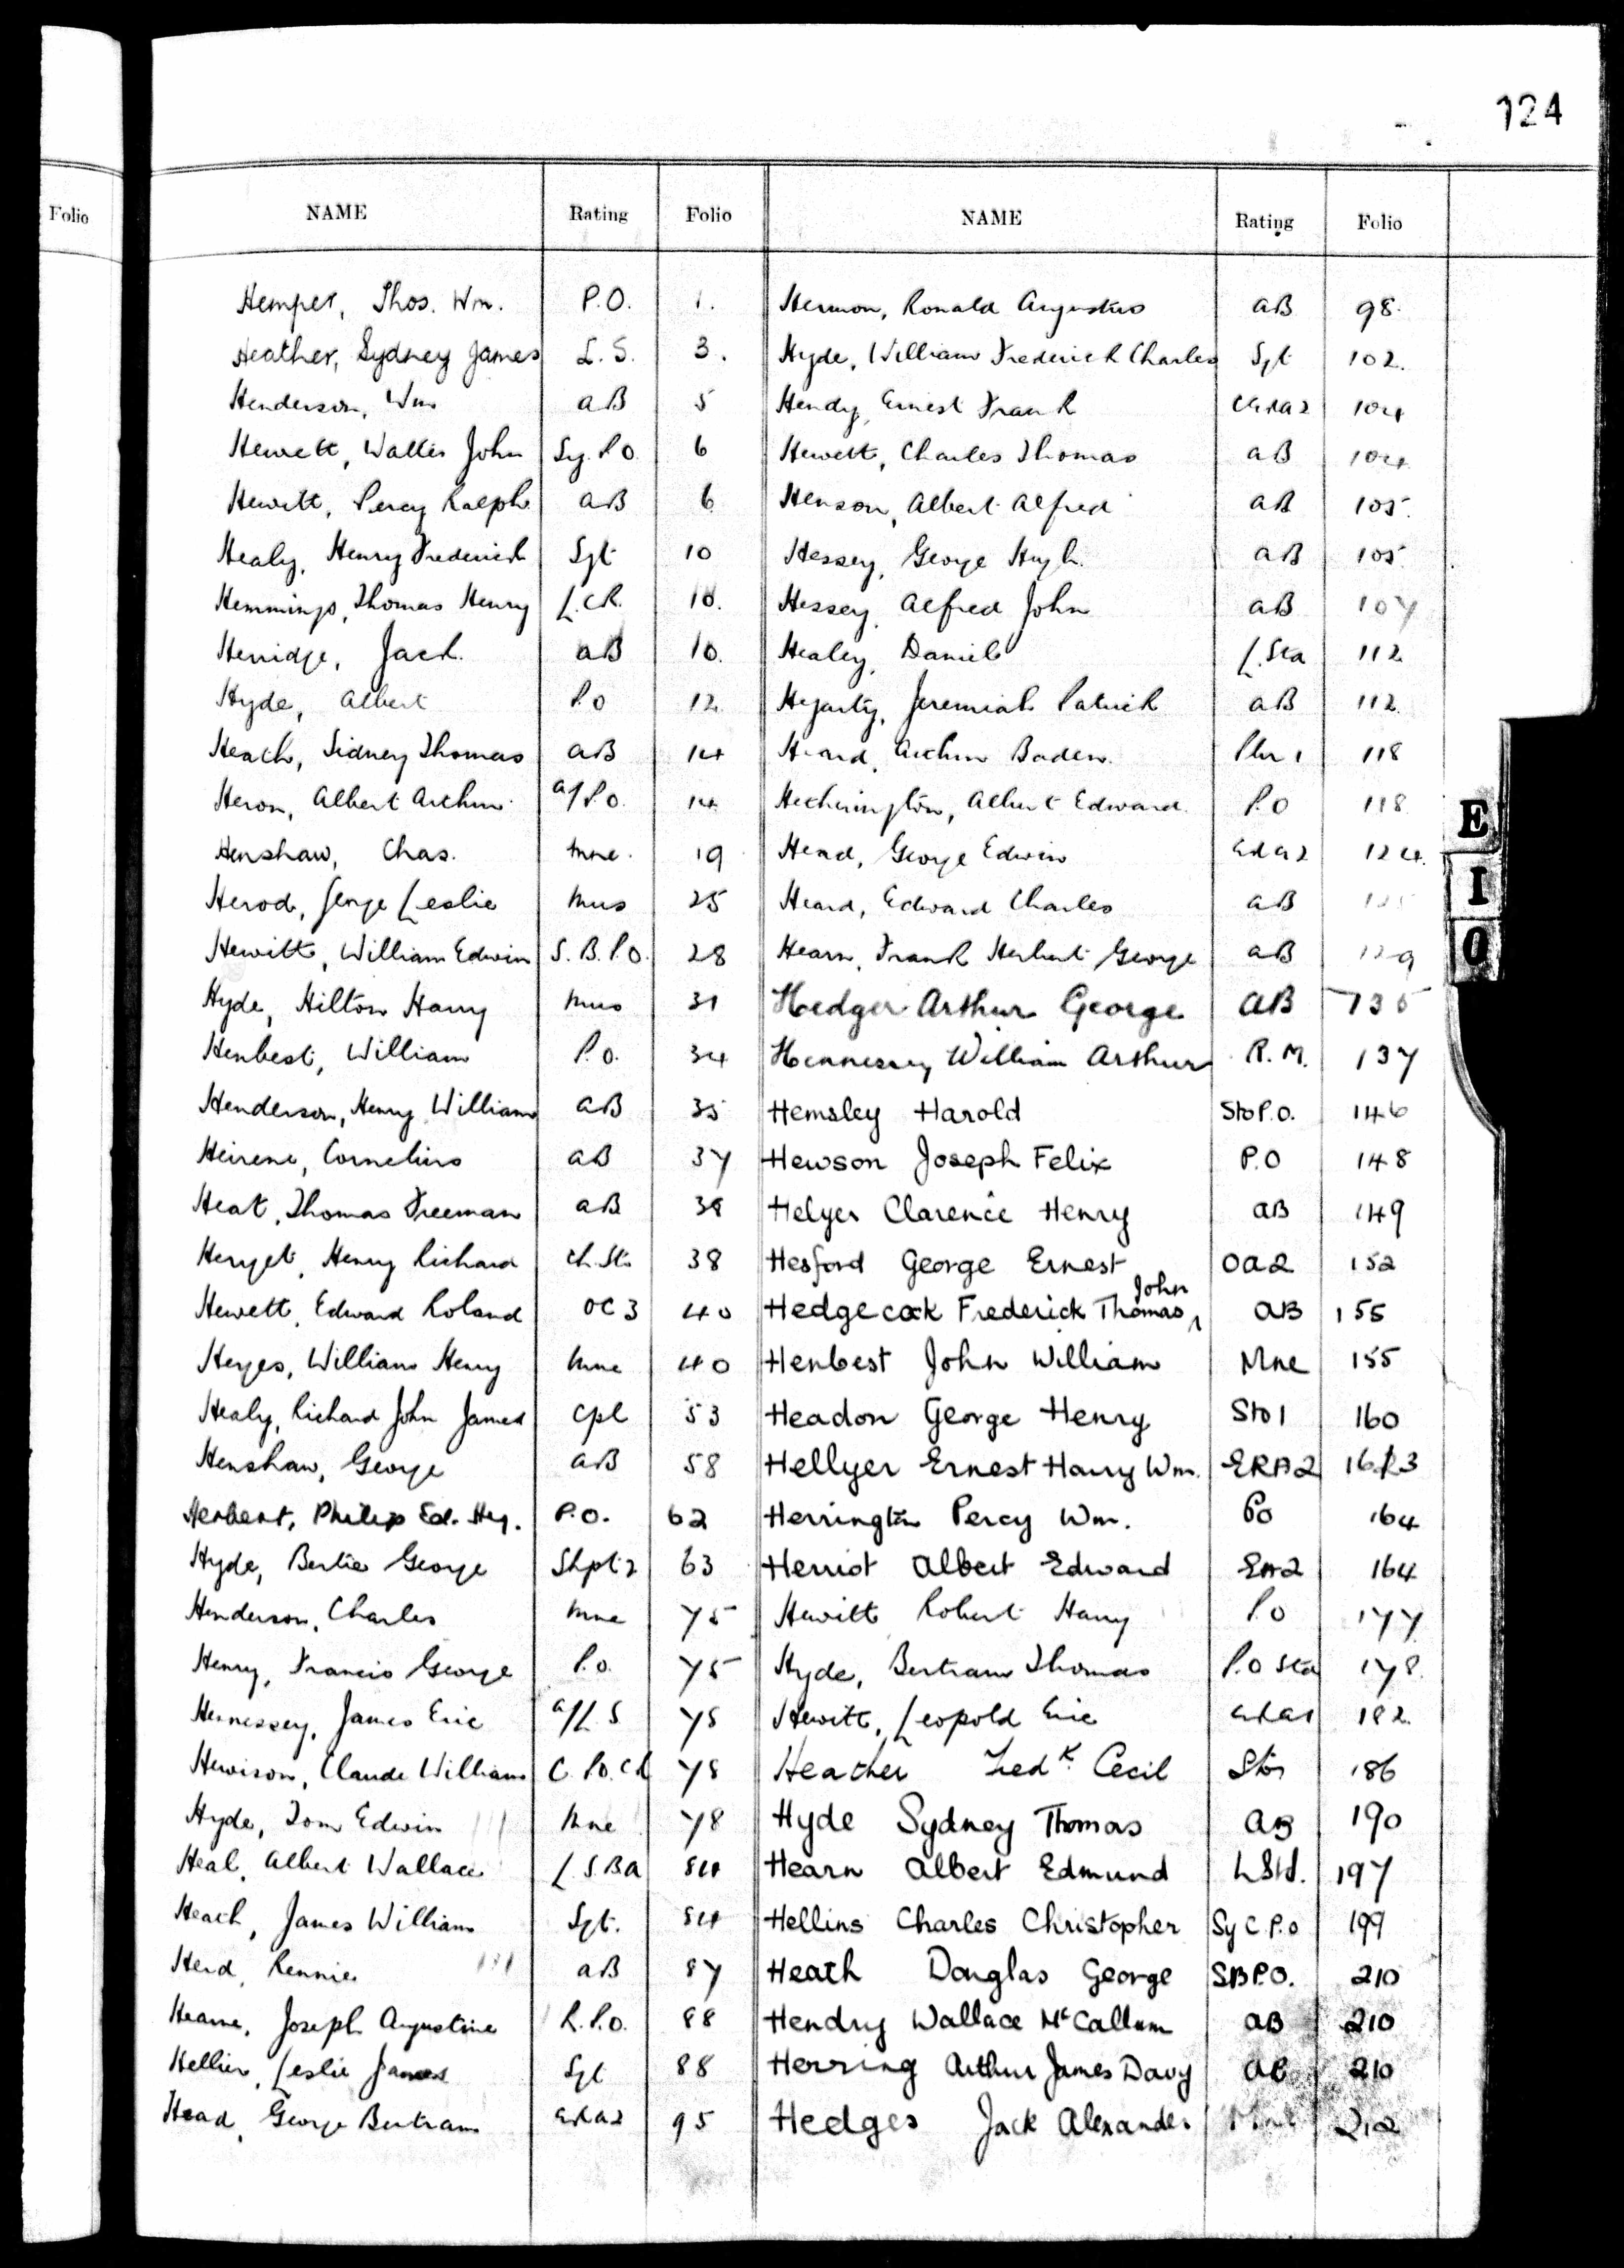 124
Folio
NAME Rating Folio
Hemper, Thos. Wm. P.O. 1.
Heather, Sydney James L.S. 3.
Henderson, Wm AB 5
Hewett, Walter John Sy. P.O. 6
Hewitt, Percy Ralph AB 6
Healy, Henry Frederick Sgt 10
Hemmings, Thomas Henry L.CK. 10.
Herridge, Jack. AB 10.
Hyde, Albert P.O 12
Heath, Sidney Thomas AB 14
Heron, Albert Arthur a/P.O. 14
Henshaw, Chas. Mne. 19
Herod, George Leslie Mus 25
Hewitt, William Edwin S.B.P.O. 28
Hyde, Hilton Harry Mus 31
Henbest, William P.O. 34
Henderson, Henry William AB 35
Heirene, Cornelius AB 37
Heat, Thomas Freeman AB 38
Herget, Henry Richard Ch.Sto 38
Hewett, Edward Roland OC 3 40
Heyes, William Henry Mne 40
Healy, Richard John James Cpl 53
Henshaw, George AB 58
Herbert, Philip Ed. Hy. P.O. 62
Hyde, Bertie George Shpt 2 63
Henderson, Charles Mne 75
Henry, Francis George P.O. 75
Hennessey, James Eric a/L.S 78
Hewison, Claude William C.P.O.Ck 78
Hyde, Tom Edwin Mne 78
Heal, Albert Wallace L.S.B.A 84
Heath, James William Sgt. 84
Herd, Rennie AB 87
Hearne, Joseph Augustine R.P.O. 88
Hellier, Leslie James Sgt 88
Head, George Bertram ERA2 95
NAME Rating Folio
Hermon, Ronald Augustus AB 98.
Hyde, William Frederick Charles Sgt 102.
Hendy, Ernest Frank 104
Hewett, Charles Thomas AB 104
Henson, Albert Alfred AB 105.
Hessey, George Hugh. AB 105
Hessey, Alfred John AB 107
Healey, Daniel L.Sto 112
Hegarty, Jeremiah Patrick AB 112
Heard, Arthur Baden. Plr 1 118
Hetherington, Albert Edward. P.O 118
Head, George Edwin ERA2 124.
Heard, Edward Charles AB 125
Hearn, Frank Herbert George AB 129
Hedger Arthur George AB 135
Hennessey William Arthur R.M. 137
Hemsley Harold Sto P.O. 146
Hewson Joseph Felix P.O 148
Helyer Clarence Henry AB 149
Hesford George Ernest OA2 152
Hedgecock Frederick Thomas John AB 155
Henbest John William Mne 155
Headon George Henry Sto 1 160
Hellyer Ernest Harry Wm. ERA2 163
Herrington Percy Wm. PO 164
Herriot Albert Edward EA2 164
Hewitt Robert Harry P.O 177
Hyde, Bertram Thomas P.O Sto 178.
Hewitt, Leopold Eric ERA1 182
Heather Fredk. Cecil Sto1 186
Hyde Sydney Thomas AB 190
Hearn Albert Edmund LStd. 197
Hellins Charles Christopher Sy C P.O 199
Heath Douglas George SBP.O. 210
Hendry Wallace McCallum AB 210
Herring Arthur James Davy AB 210
Hedges Jack Alexander 212
E
I
O